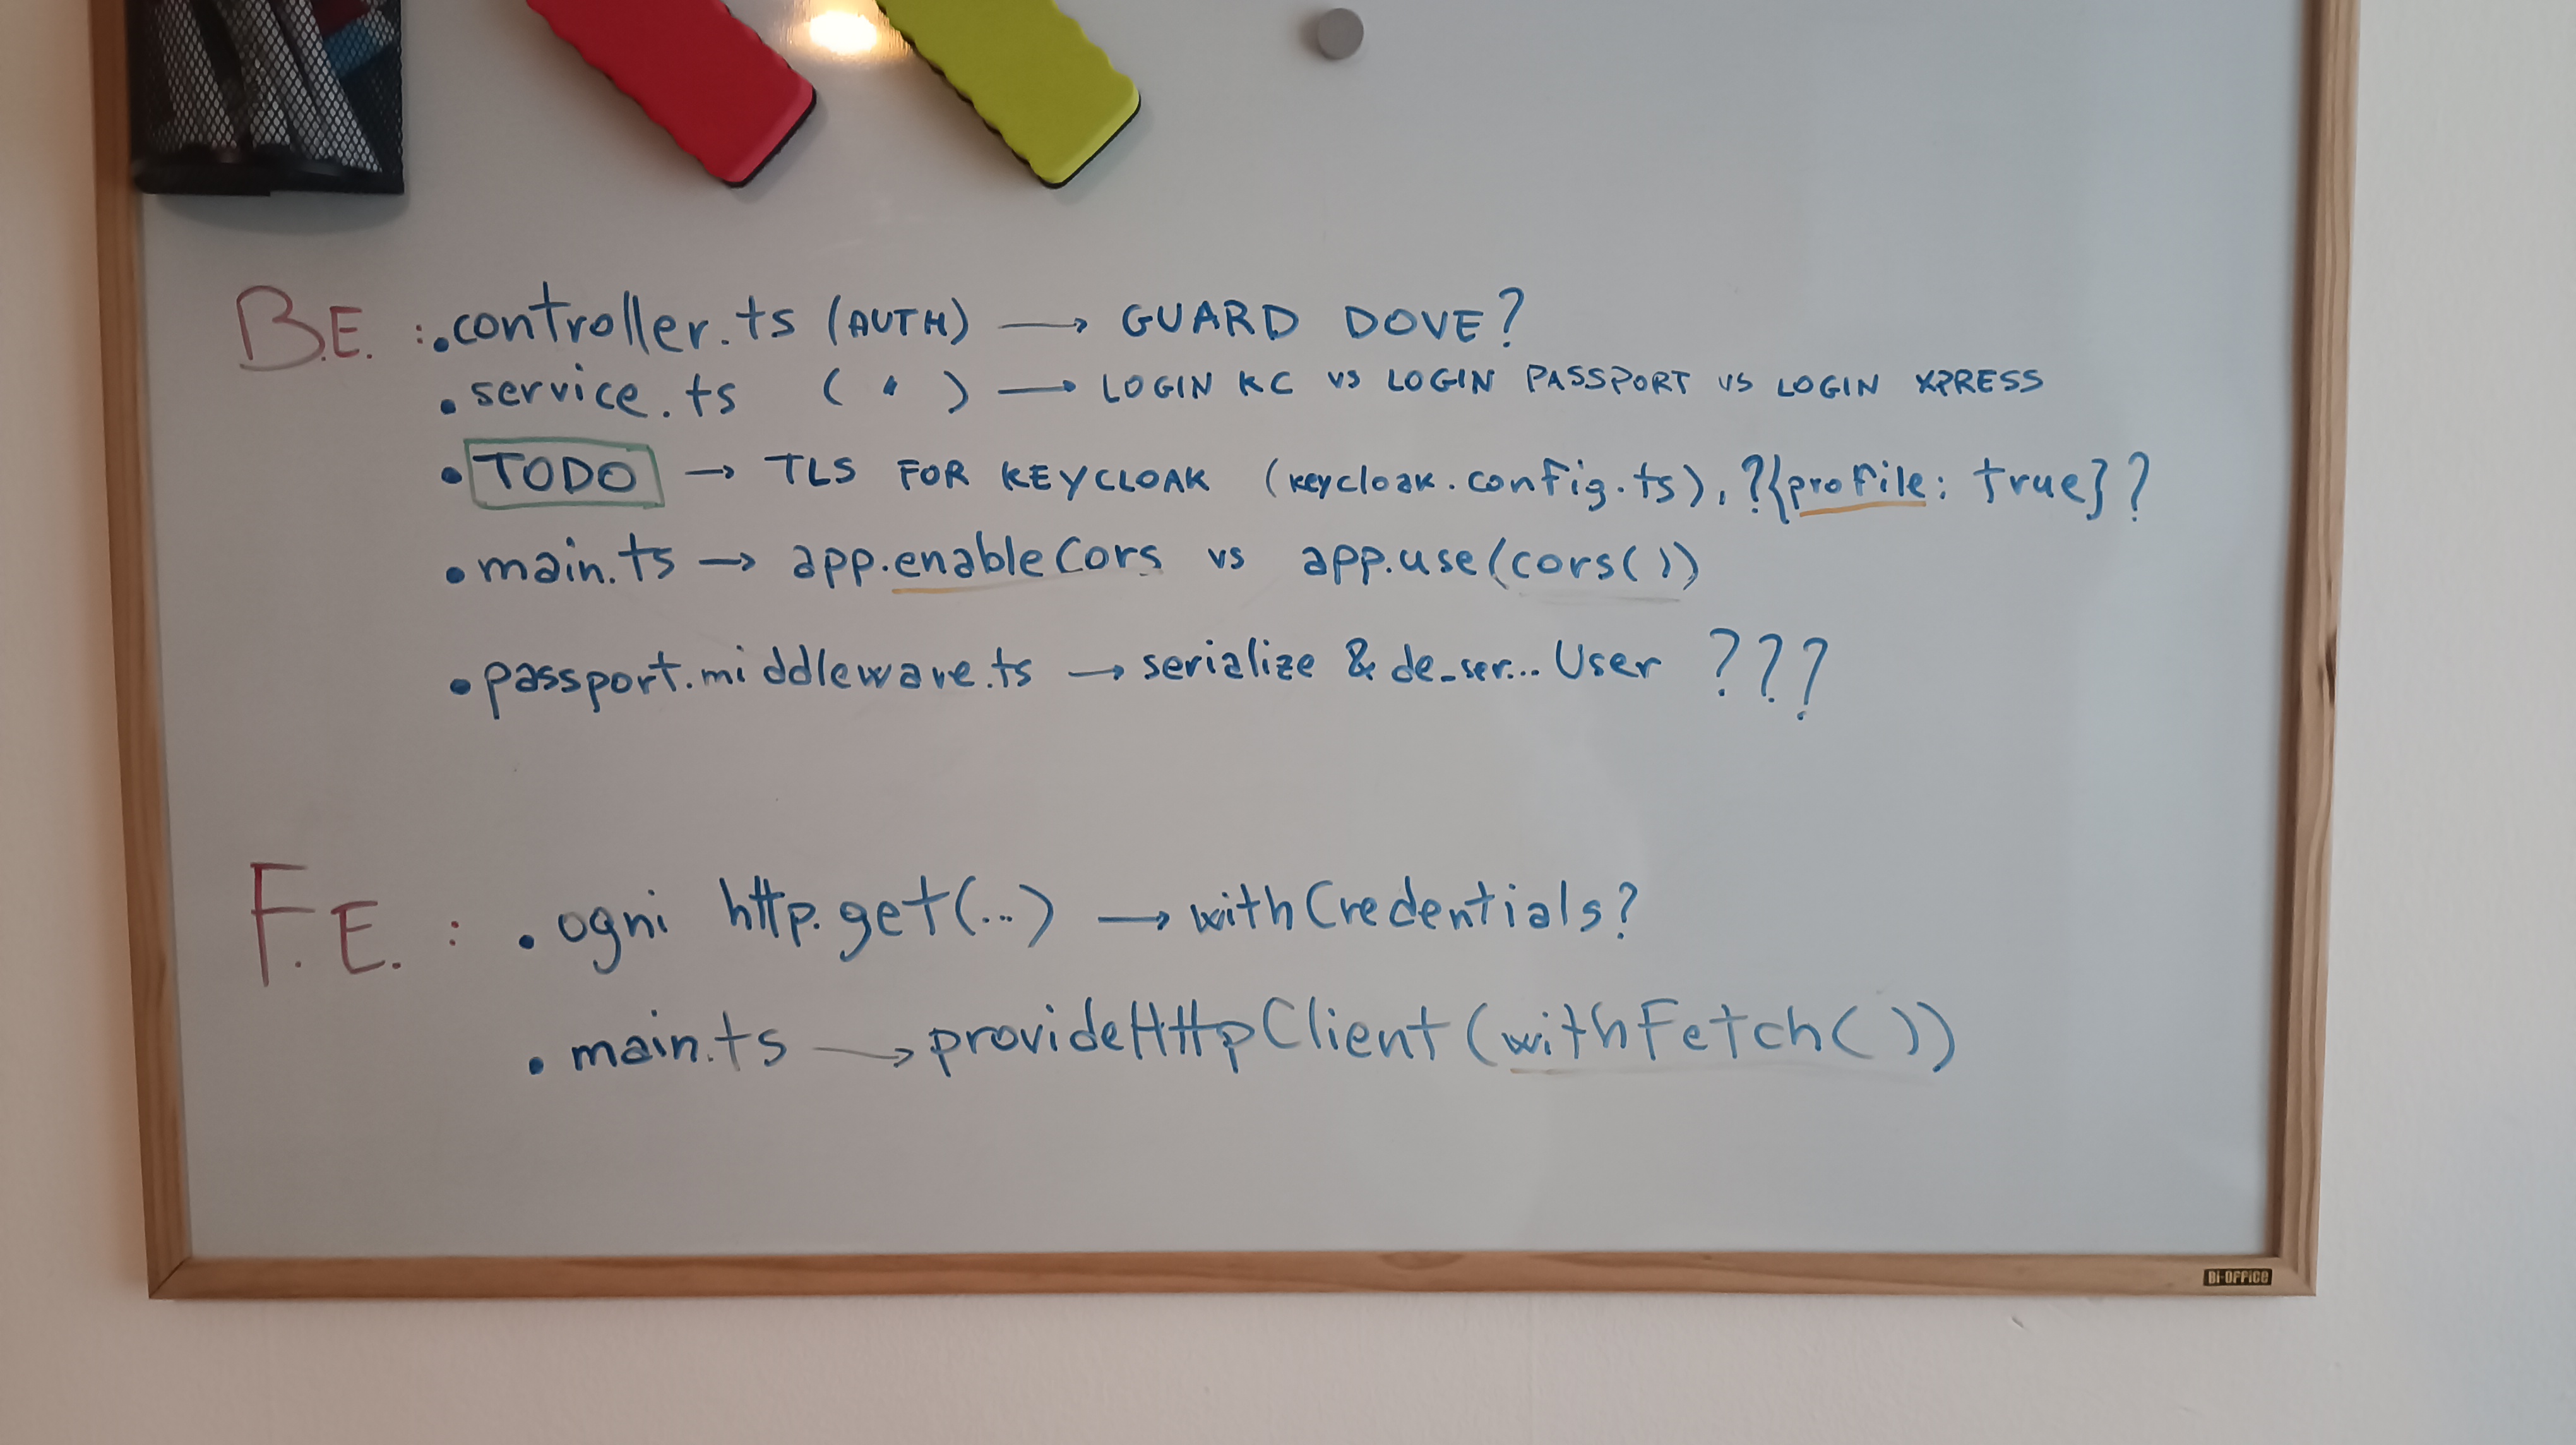 B.E. : • controller.ts (AUTH) → GUARD DOVE?
• service.ts ( " ) → LOGIN KC VS LOGIN PASSPORT VS LOGIN XPRESS
• TODO → TLS FOR KEYCLOAK (keycloak.config.ts), ?{profile: true}?
• main.ts → app.enableCors vs app.use(cors())
• passport.middleware.ts → serialize & de_ser... User ???
F.E. : • ogni http.get(...) → withCredentials?
• main.ts → provideHttpClient(withFetch())
Bi-OFFiCE